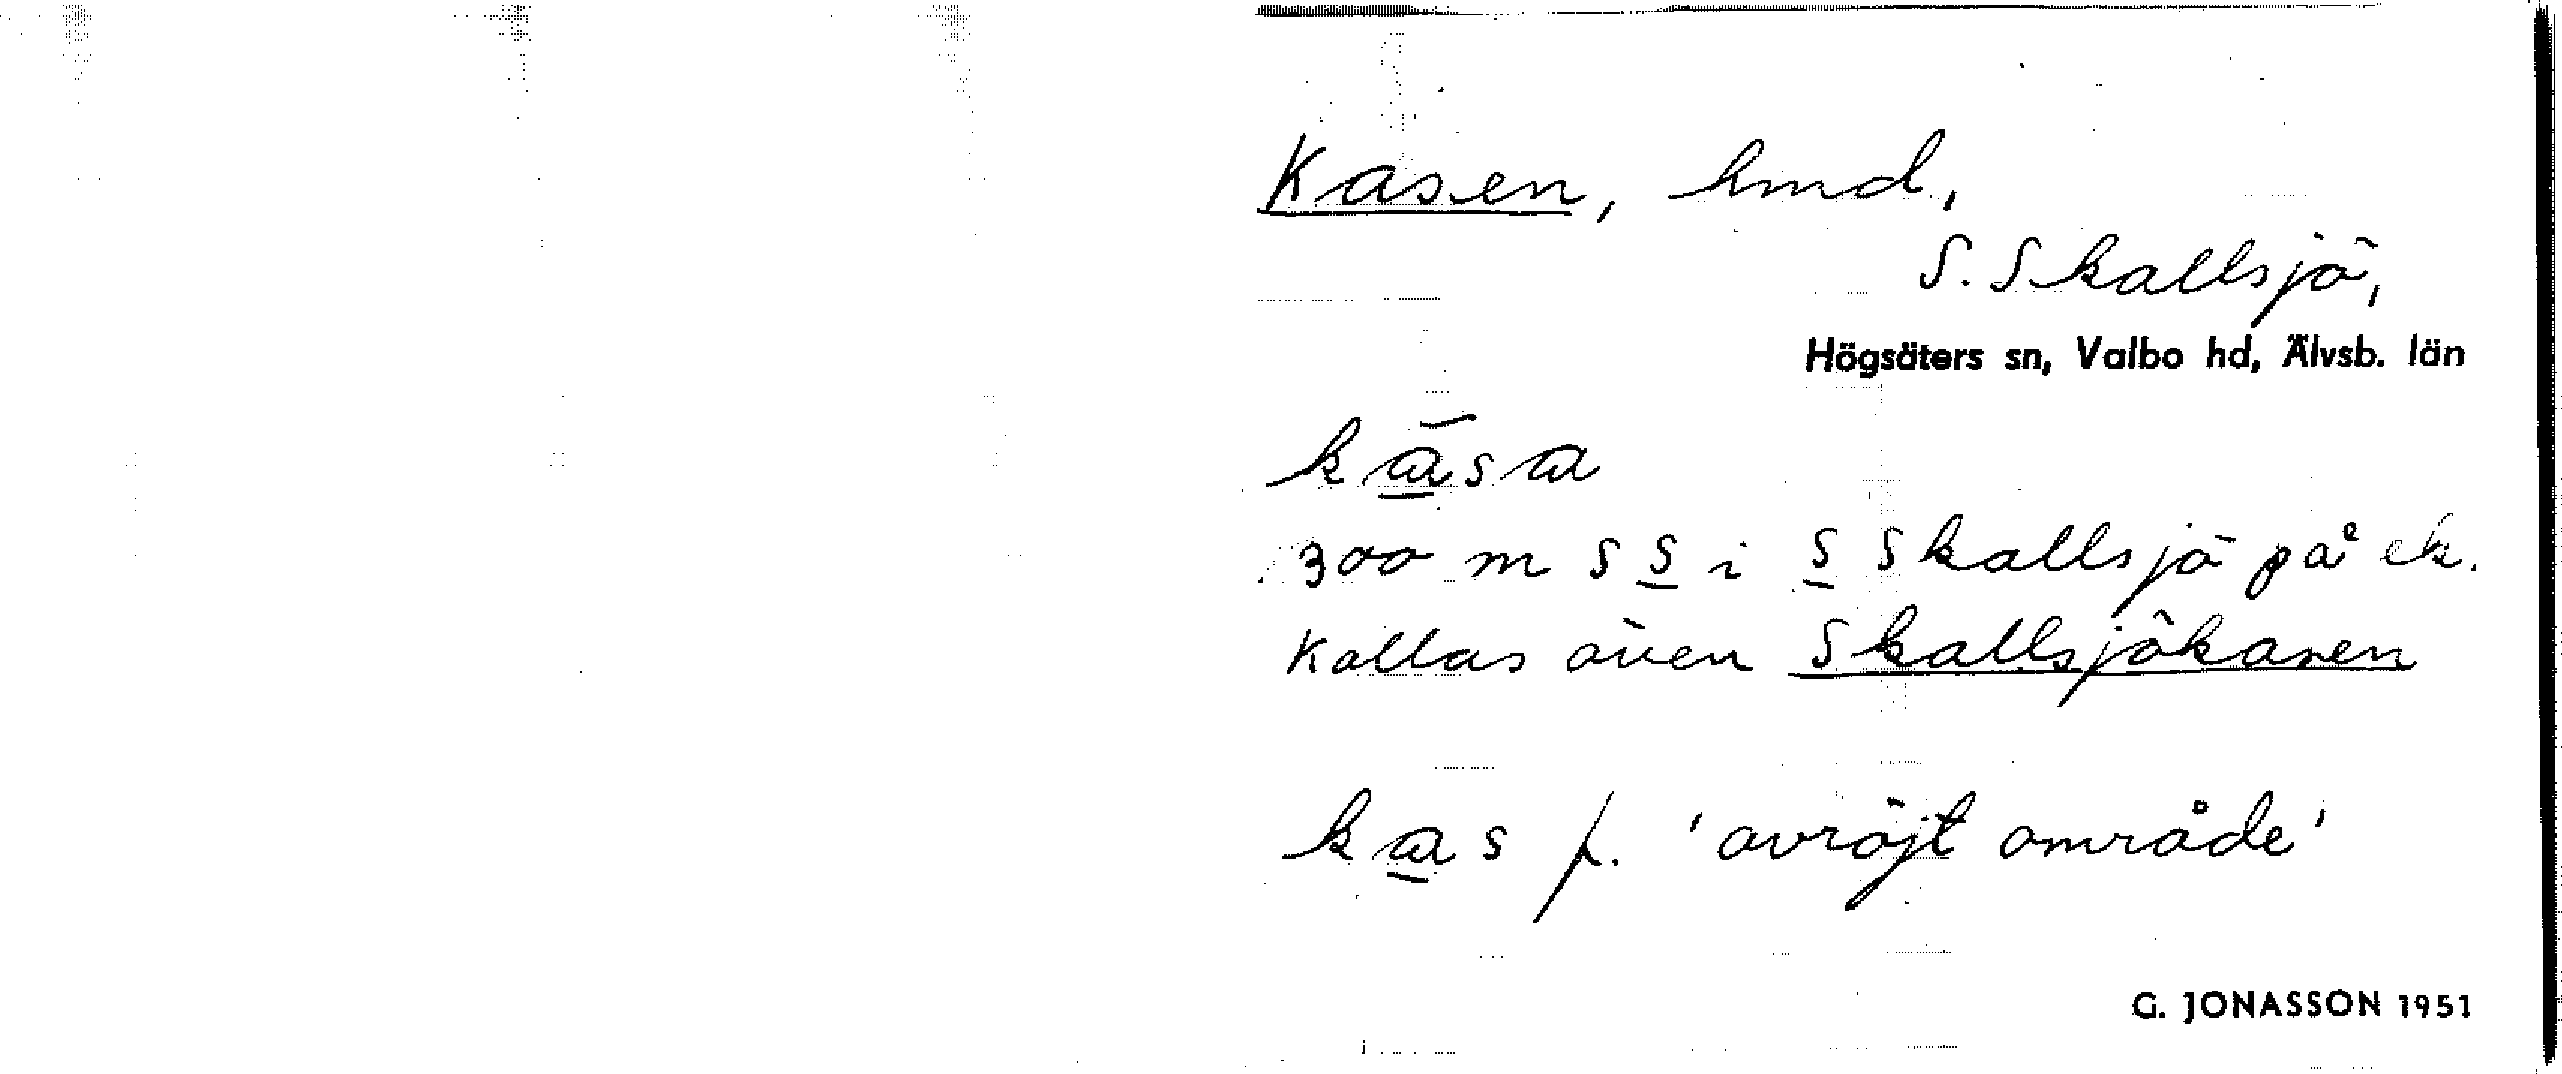 Kasen, hmd,
S. Skallsjö,
Högsäters sn, Valbo hd, Älvsb. län
kāsa
300 m S S i S Skallsjö på ek.
Kallas även Skallsjökasen
kas f. 'avröjt område'
G. JONASSON 1951